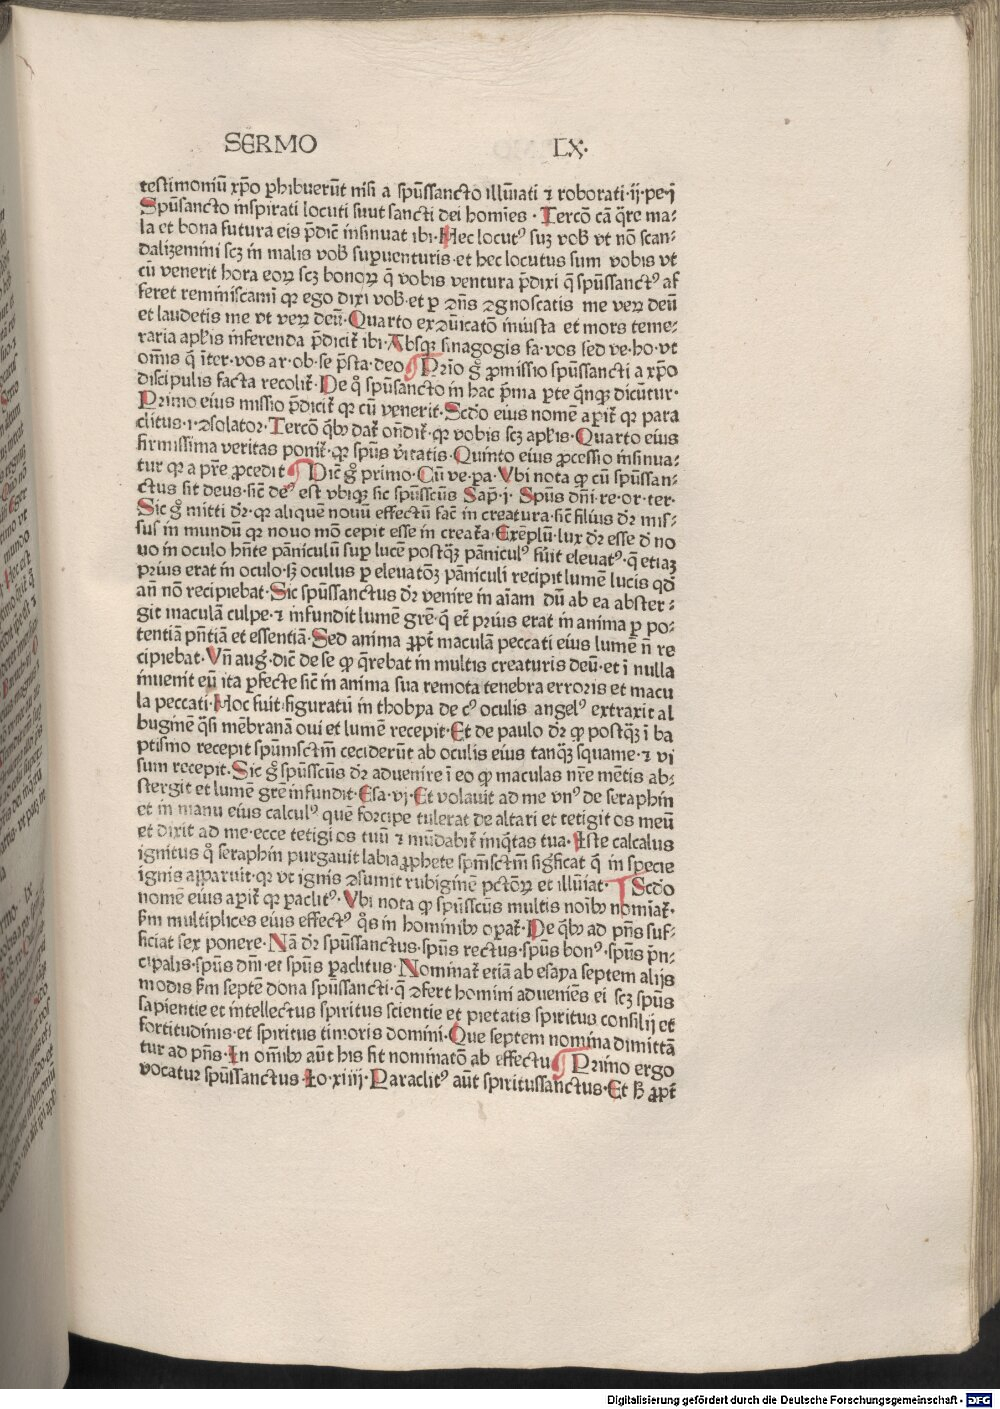 SERMO LX·
testimoniū xp̄o ꝑhibuerūt nisi a spūssancto illūiati ⁊ roborati·ij·pe·j
Spūsancto inspirati locuti sunt sancti dei homīes· Tercō cā q̄re ma⸗
la et bona futura eis p̄dic̄ insinuat ibi·Hec locutꝰ suꝫ vob̄ vt nō scan⸗
dalizemini scꝫ in malis vob̄ suꝑuenturis·et hec locutus sum vobis vt
cū venerit hora eoꝝ scꝫ bonoꝝ q̄ vobis ventura p̄dixi q̄ spūssanctꝰ af
feret reminiscamī qꝛ ego dixi vob̄·et ꝑ ꝯn̄s ꝯgnoscatis me veꝝ deū
et laudetis me vt veꝝ deū·Quarto exꝯūicatō iniusta et mors teme⸗
raria apl̄is inferenda p̄dicit̄ ibi·Absqꝫ sinagogis fa·vos sed ve·ho·vt
om̄is q̄ īter·vos ar·ob·se p̄sta·deo Prīo g̊ ꝓmissio spūssancti a xp̄o
discipulis facta recolit̄·De q̊ spūsancto in hac p̄ma ꝑte q̄nqꝫ dicūtur·
Primo eius missio p̄dicit̄ qꝛ cū venerit·Scd̄o eius nomē aꝑit̄ qꝛ para
clitus·i·ꝯsolator·Tercō q̄bꝫ dat̄ on̄dit̄·qꝛ vobis scꝫ apl̄is·Quarto eius
firmissima veritas ponit̄·qꝛ spūs v̄itatis·Quinto eius ꝓcessio insinua⸗
tur qꝛ a pr̄e ꝓcedit Dic̄ g̊ primo·Cū ve·pa·Vbi nota ꝙ cū spūssan⸗
ctus sit deus·sic̄ deꝰ est vbiqꝫ sic spūsscūs Sap̄·j·Spūs dn̄i·re·or·ter·
Sic g̊ mitti dr̄·qꝛ aliquē nouū effectū fac̄ in creatura·sic̄ filius dr̄ mis⸗
sus in mundū qꝛ nouo mō cepit esse in creat̄a·Exēplū·lux dr̄ esse d̄ no
uo in oculo hn̄te pāniculū suꝑ lucē postq̄ꝫ pāniculꝰ fūit eleuatꝰ·q̄ etiaꝫ
prius erat in oculo·sꝫ oculus ꝑ eleuatōꝫ pāniculi recipit lumē lucis qd̄
an̄ nō recipiebat·Sic spūssanctus dr̄ venire in aīam dū ab ea abster⸗
git maculā culpe·⁊ infundit lumē grē·q̄ et̄ prius erat in anima ꝑ po⸗
tentiā pn̄tiā et essentiā·Sed anima ꝓpt̄ maculā peccati eius lumē n̄ re
cipiebat·Vn̄ aug̊·dic̄ de se ꝙ q̄rebat in multis creaturis deū·et ī nulla
inuenit eū ita ꝑfecte sic̄ in anima sua remota tenebra erroris et macu
la peccati·Hoc fuit figuratū in thobya de cꝰ oculis angelꝰ extraxit al
buginē q̄si mēbranā oui et lumē recepit·Et de paulo dr̄ ꝙ postq̄ꝫ ī ba
ptismo recepit spūmsctm̄ ceciderūt ab oculis eius tanq̄ꝫ squame·⁊ vi
sum recepit·Sic g̊ spūsscūs dr̄ aduenire ī eo ꝙ maculas nr̄e mētis ab⸗
stergit et lumē grē infundit·Esa·vj·Et volauit ad me vnꝰ de seraphin
et in manu eius calculꝰ quē forcipe tulerat de altari et tetigit os meū
et dixit ad me·ecce tetigi os tuū ⁊ mūdabit̄ iniq̄tas tua·Iste calculus
ignitus q̊ seraphin purgauit labia ꝓphete spm̄sctm̄ sig̊ficat q̄ in specie
ignis aꝑparuit·qꝛ vt ignis ꝯsumit rubiginē pctōꝝ et illūiat· Scd̄o
nomē eius aꝑit̄ qꝛ ꝑaclitꝰ·Vbi nota ꝙ spūsscūs multis noībꝫ nomīat̄·
ẜm multiplices eius effectꝰ q̊s in hominibꝫ oꝑat̄·De q̄bꝫ ad pn̄s suf⸗
ficiat sex ponere·Nā dr̄ spūssanctus·spūs rectus·spūs bonꝰ·spūs p̄n⸗
cipalis·spūs dm̄·et spūs ꝑaclitus·Nominat̄ etiā ab esaya septem alijs
modis ẜm septē dona spūssancti·q̄ ꝯfert homini adueniēs ei scꝫ spūs
sapientie et intellectus spiritus scientie et pietatis spiritus consilij et
fortitudinis·et spiritus timoris domini·Que septem nomina dimittā
tur ad pn̄s·In om̄ibꝫ aūt his fit nominatō ab effectu Primo ergo
vocatur spūssanctus·Io·xiiij·Paraclitꝰ aūt spiritussanctus·Et ꝫ ꝓpt̄
Digitalisierung gefördert durch die Deutsche Forschungsgemeinschaft - DFG